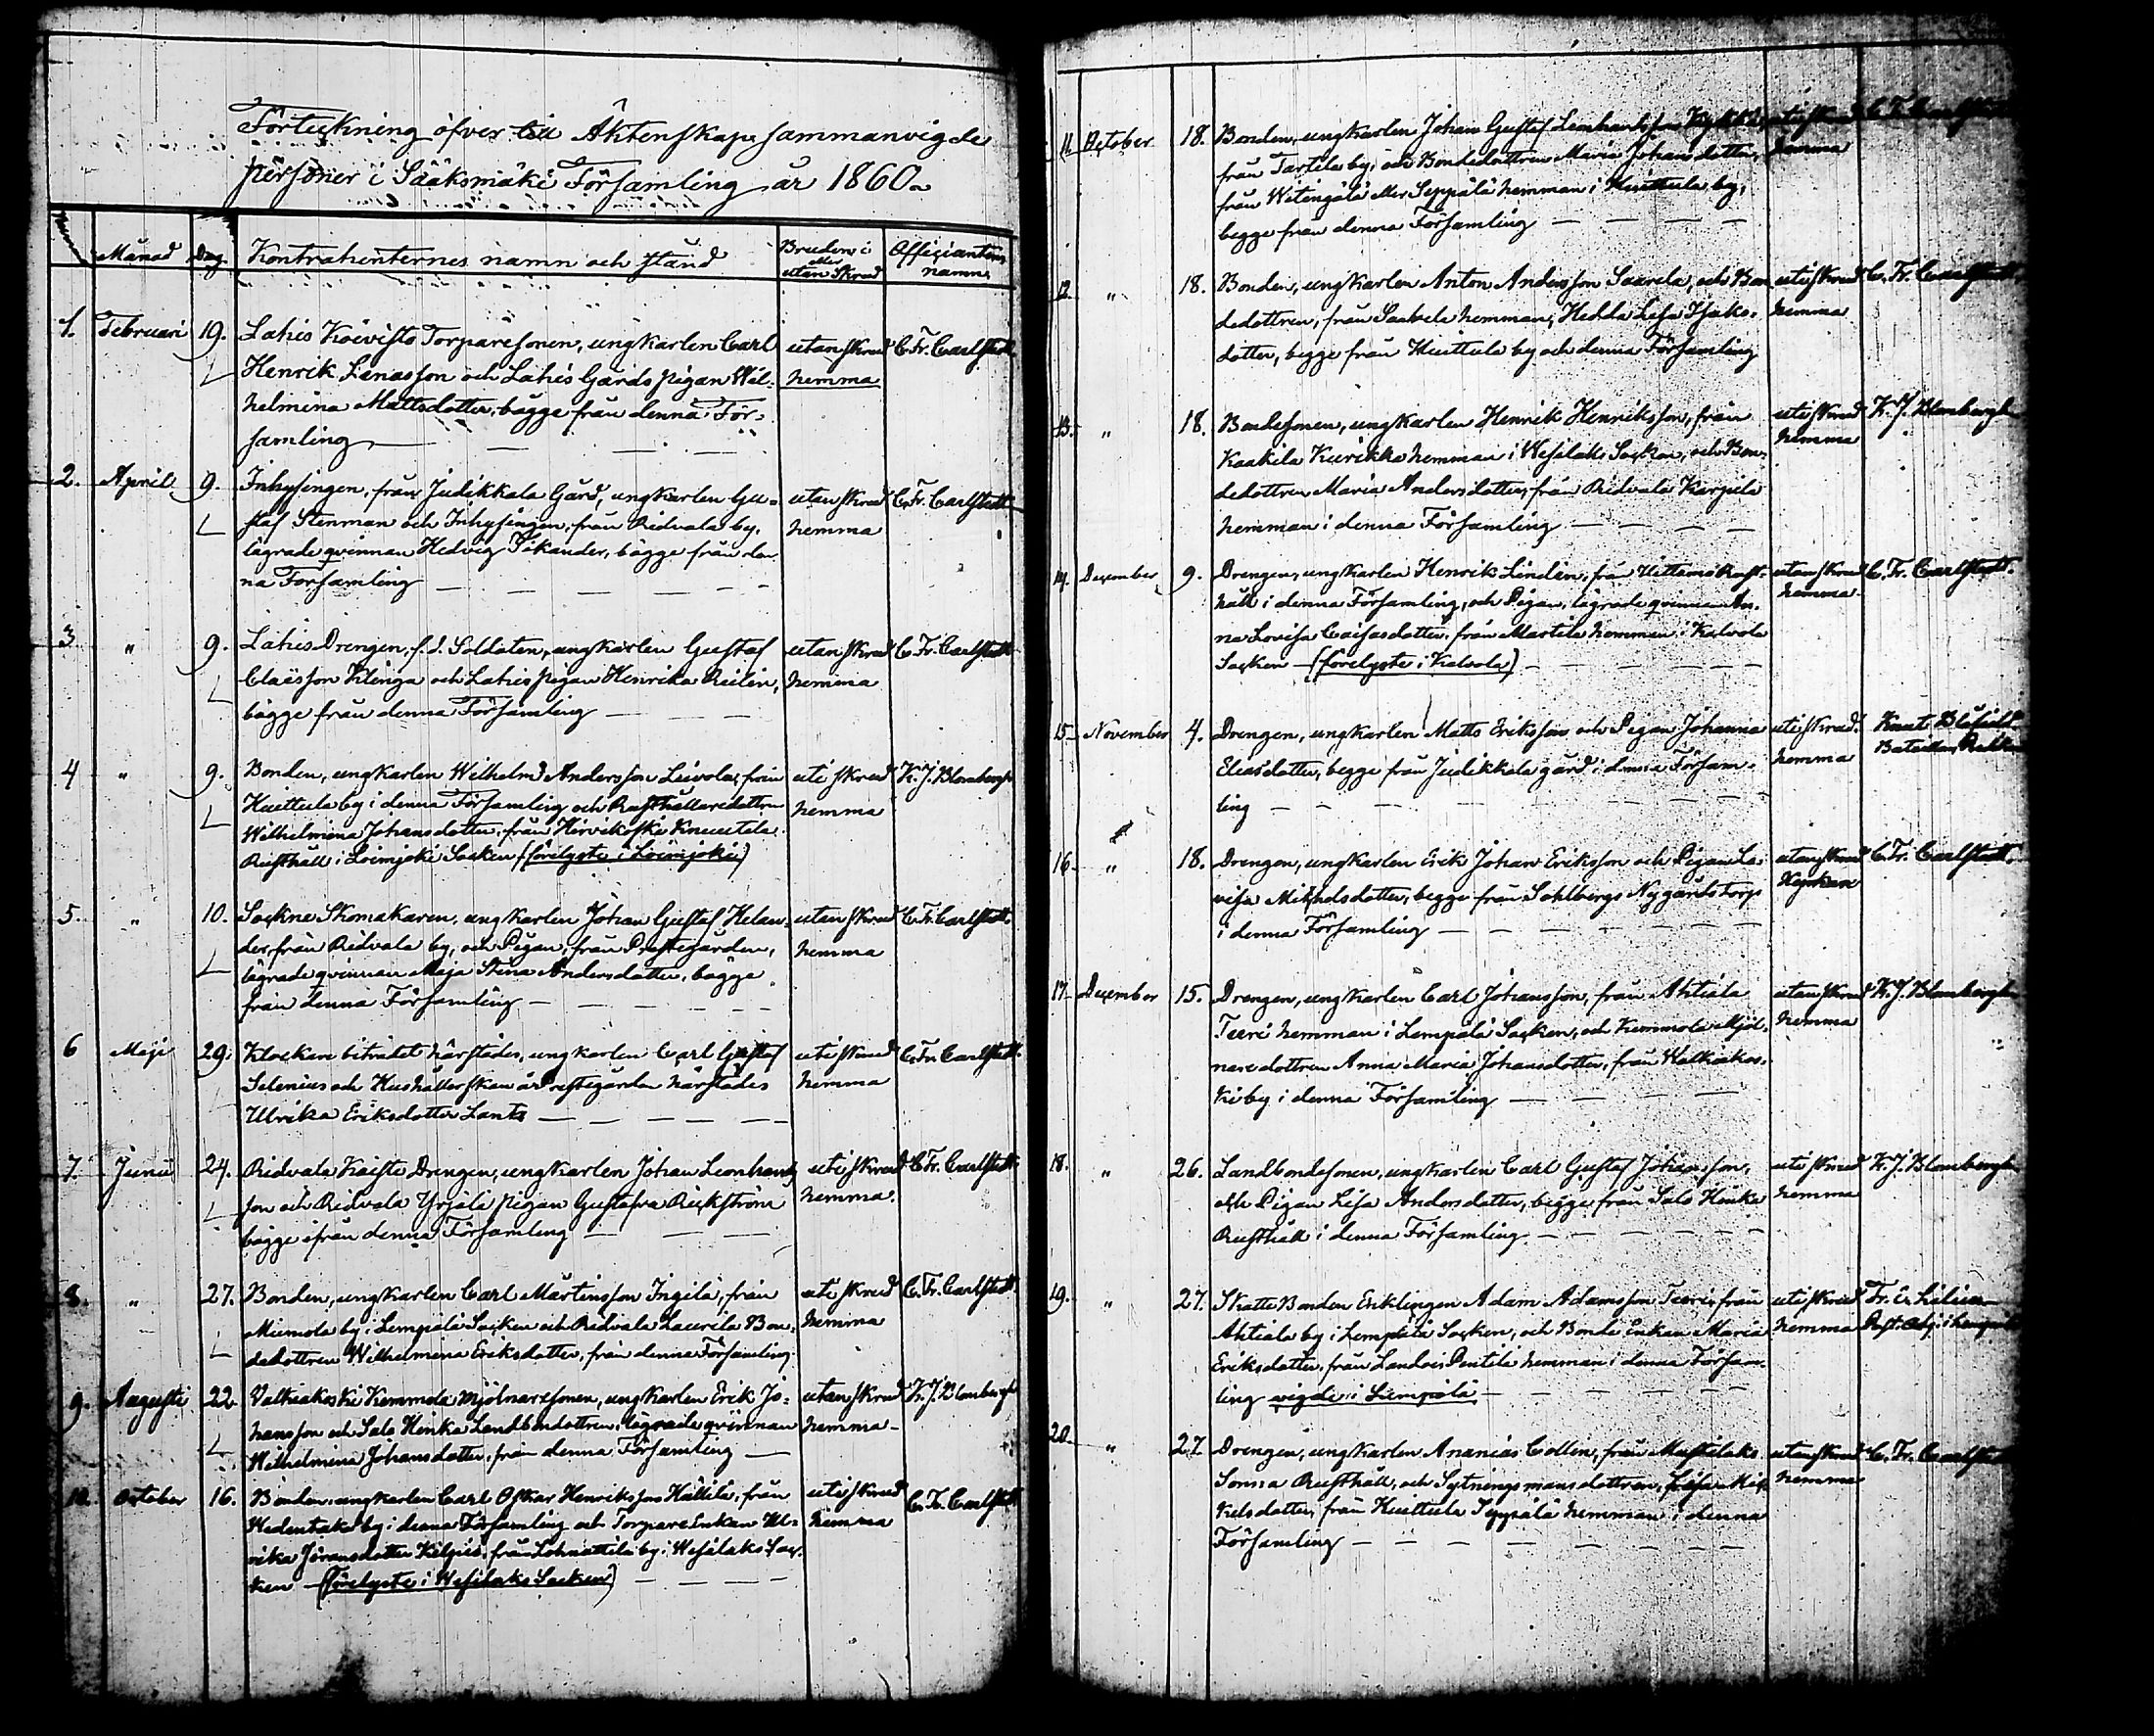 Förteckning öfver till Äktenskap sammanvigde
personer i Sääksmäki Församling år 1860.
Månad Dag Kontrahenternes namn och stånd Bruden i eller utan Skrud Officiantens namn
1. Februari 19. Lahis Koivisto Torparesonen, ungkarlen Carl utan skrud C. Fr. Carlstedt
Henrik Enasson och Lahis Gårds pigan Wil- hemma
helmina Mattsdotter, bägge från denna För-
samling
2. April 9. Inhysingen, från Judikkala Gård, ungkarlen Gu- utan skrud C. Fr. Carlstedt
staf Stenman och Inhysingen, från Ridvala by, hemma
lägrade qvinnan Hedvig Sikander, bägge från den
na Församling
3 " 9. Lahis Drengen, f.d. Soldaten, ungkarlen Gustaf utan skrud C. Fr. Carlstedt
Claësson Klinga och Lahis pigan Henrika Reilin, hemma
bägge från denna Församling
4 " 9. Bonden, ungkarlen Wilhelm Andersson Leivola, från uti skrud K. J. Blombergh
Huittula by i denna Församling och Rusthållaredottren hemma
Wilhelmina Johansdotter, från Hirvikoski Knuutila
Rusthåll i Loimjoki Socken (förelyste i Loimjoki)
5. " 10. Sockne Skomakaren, ungkarlen Johan Gustaf Helan- utan skrud C. Fr. Carlstedt
der, från Ridvala by, och Pigan, från Prestegården, hemma
lägrade qvinnan Maja Stina Andersdotter, bägge
från denna Församling
6 Maji 29. Klockare biträdet härstädes, ungkarlen Carl Gustaf uti skrud C. Fr. Carlstedt
Selenius och Hushållerskan å Prestegården härstädes hemma
Ulrika Eriksdotter Lants
7. Junii 24. Ridvala Kaisto Drengen, ungkarlen Johan Leonhards uti skrud C. Fr. Carlstedt
son och Ridvala Yrjälä pigan Gustafva Rickström hemma
bägge ifrån denna Församling
8. " 27. Bonden, ungkarlen Carl Mårtinsson Ingilä, från uti skrud C. Fr. Carlstedt
Miemola by i Lempälä Socken och Ridvala Laurila Bon- hemma
dedottren Wilhelmina Eriksdotter, från denna Församling
9. Augusti 22. Valkiakoski Kemmola mjölnaresonen, ungkarlen Erik Jo- utan skrud K. J. Blombergh
hansson och Salo Henka Landbondedottren, lägrade qvinnan hemma
Wilhelmina Johansdotter, från denna Församling
10. October 16. Bonden, ungkarlen Carl Oskar Henriksson Hällilä, från uti skrud C. Fr. Carlstedt
by i denna Församling och Torpare Enkan Ul- hemma
rika Göransdotter från by i Wesilaks Soc-
ken (förelyste i Wesilaks Socken)
11. October 18. Bonden, ungkarlen Johan Gustaf Leonhardsson
från Tarttila by, och Bondedottren Maria Johansdotter, hemma
från Witingälä eller Seppälä hemman i Huittula by,
begge från denna Församling
12. " 18. Bonden, ungkarlen Anton Andersson Saarela, och Bon uti skrud C. Fr. Carlstedt
dedottren, från hemman, Hedda Lisa Isaks- hemma
dotter, begge från Huittula by och denna Församling
13. " 18. Bondesonen, ungkarlen Henrik Henriksson, från uti skrud K. J. Blombergh
Kaakila Kurikka hemman i Wesilaks Socken, och Bon- hemma
dedottren Maria Andersdotter, från Ridvala Karpila
hemman i denna Församling
14. December 9. Drengen, ungkarlen Henrik Lindén, från Uittamo Rust- utan skrud C. Fr. Carlstedt.
håll i denna Församling, och Pigan, lägrade qvinnan An- hemma
na Lovisa Caisasdotter, från Martila hemman i Kalvola
Socken (förelyste i Kalvola)
15. November 4. Drengen, ungkarlen Matts Eriksson och Pigan Johanna uti skrud. Knut Blåfield
Eliasdotter, begge från Judikkala gård i denna Försam- hemma
ling
16. " 18. Drengen, ungkarlen Erik Johan Eriksson och Pigan Lo- utan skrud C. Fr. Carlstedt.
visa Mikkelsdotter, begge från Sohlbergs Nygårds Torp
i denna Församling
17. December 15. Drengen, ungkarlen Carl Johansson, från Ahtiala utan skrud K. J. Blombergh
Teeri hemman i Lempälä Socken, och Kemmola Mjöl- hemma
naredottren Anna Maria Johansdotter, från Walkiakos-
ki by i denna Församling
18. " 26. Landbondesonen, ungkarlen Carl Gustaf Johansson, uti skrud K. J. Blombergh
och Pigan Lisa Andersdotter, begge från Salo Henka hemma
Rusthåll i denna Församling
19. " 27. Skatte Bonden Enklingen Adam Adamsson Teeri, från uti skrud Fr. E. Lilius
Ahtiala by i Lempälä Socken, och Bonde Enkan Maria hemma Past. Adj. i Lempälä
Eriksdotter, från Pentilä hemman i denna Försam-
ling vigde i Lempälä
20. " 27. Drengen, ungkarlen Ananias Collin, från utan skrud C. Fr. Carlstedt
Rusthåll, och Sytningsmansdottren, Lisa Mik- hemma
kelsdotter, från Huittula Seppälä hemman i denna
Församling